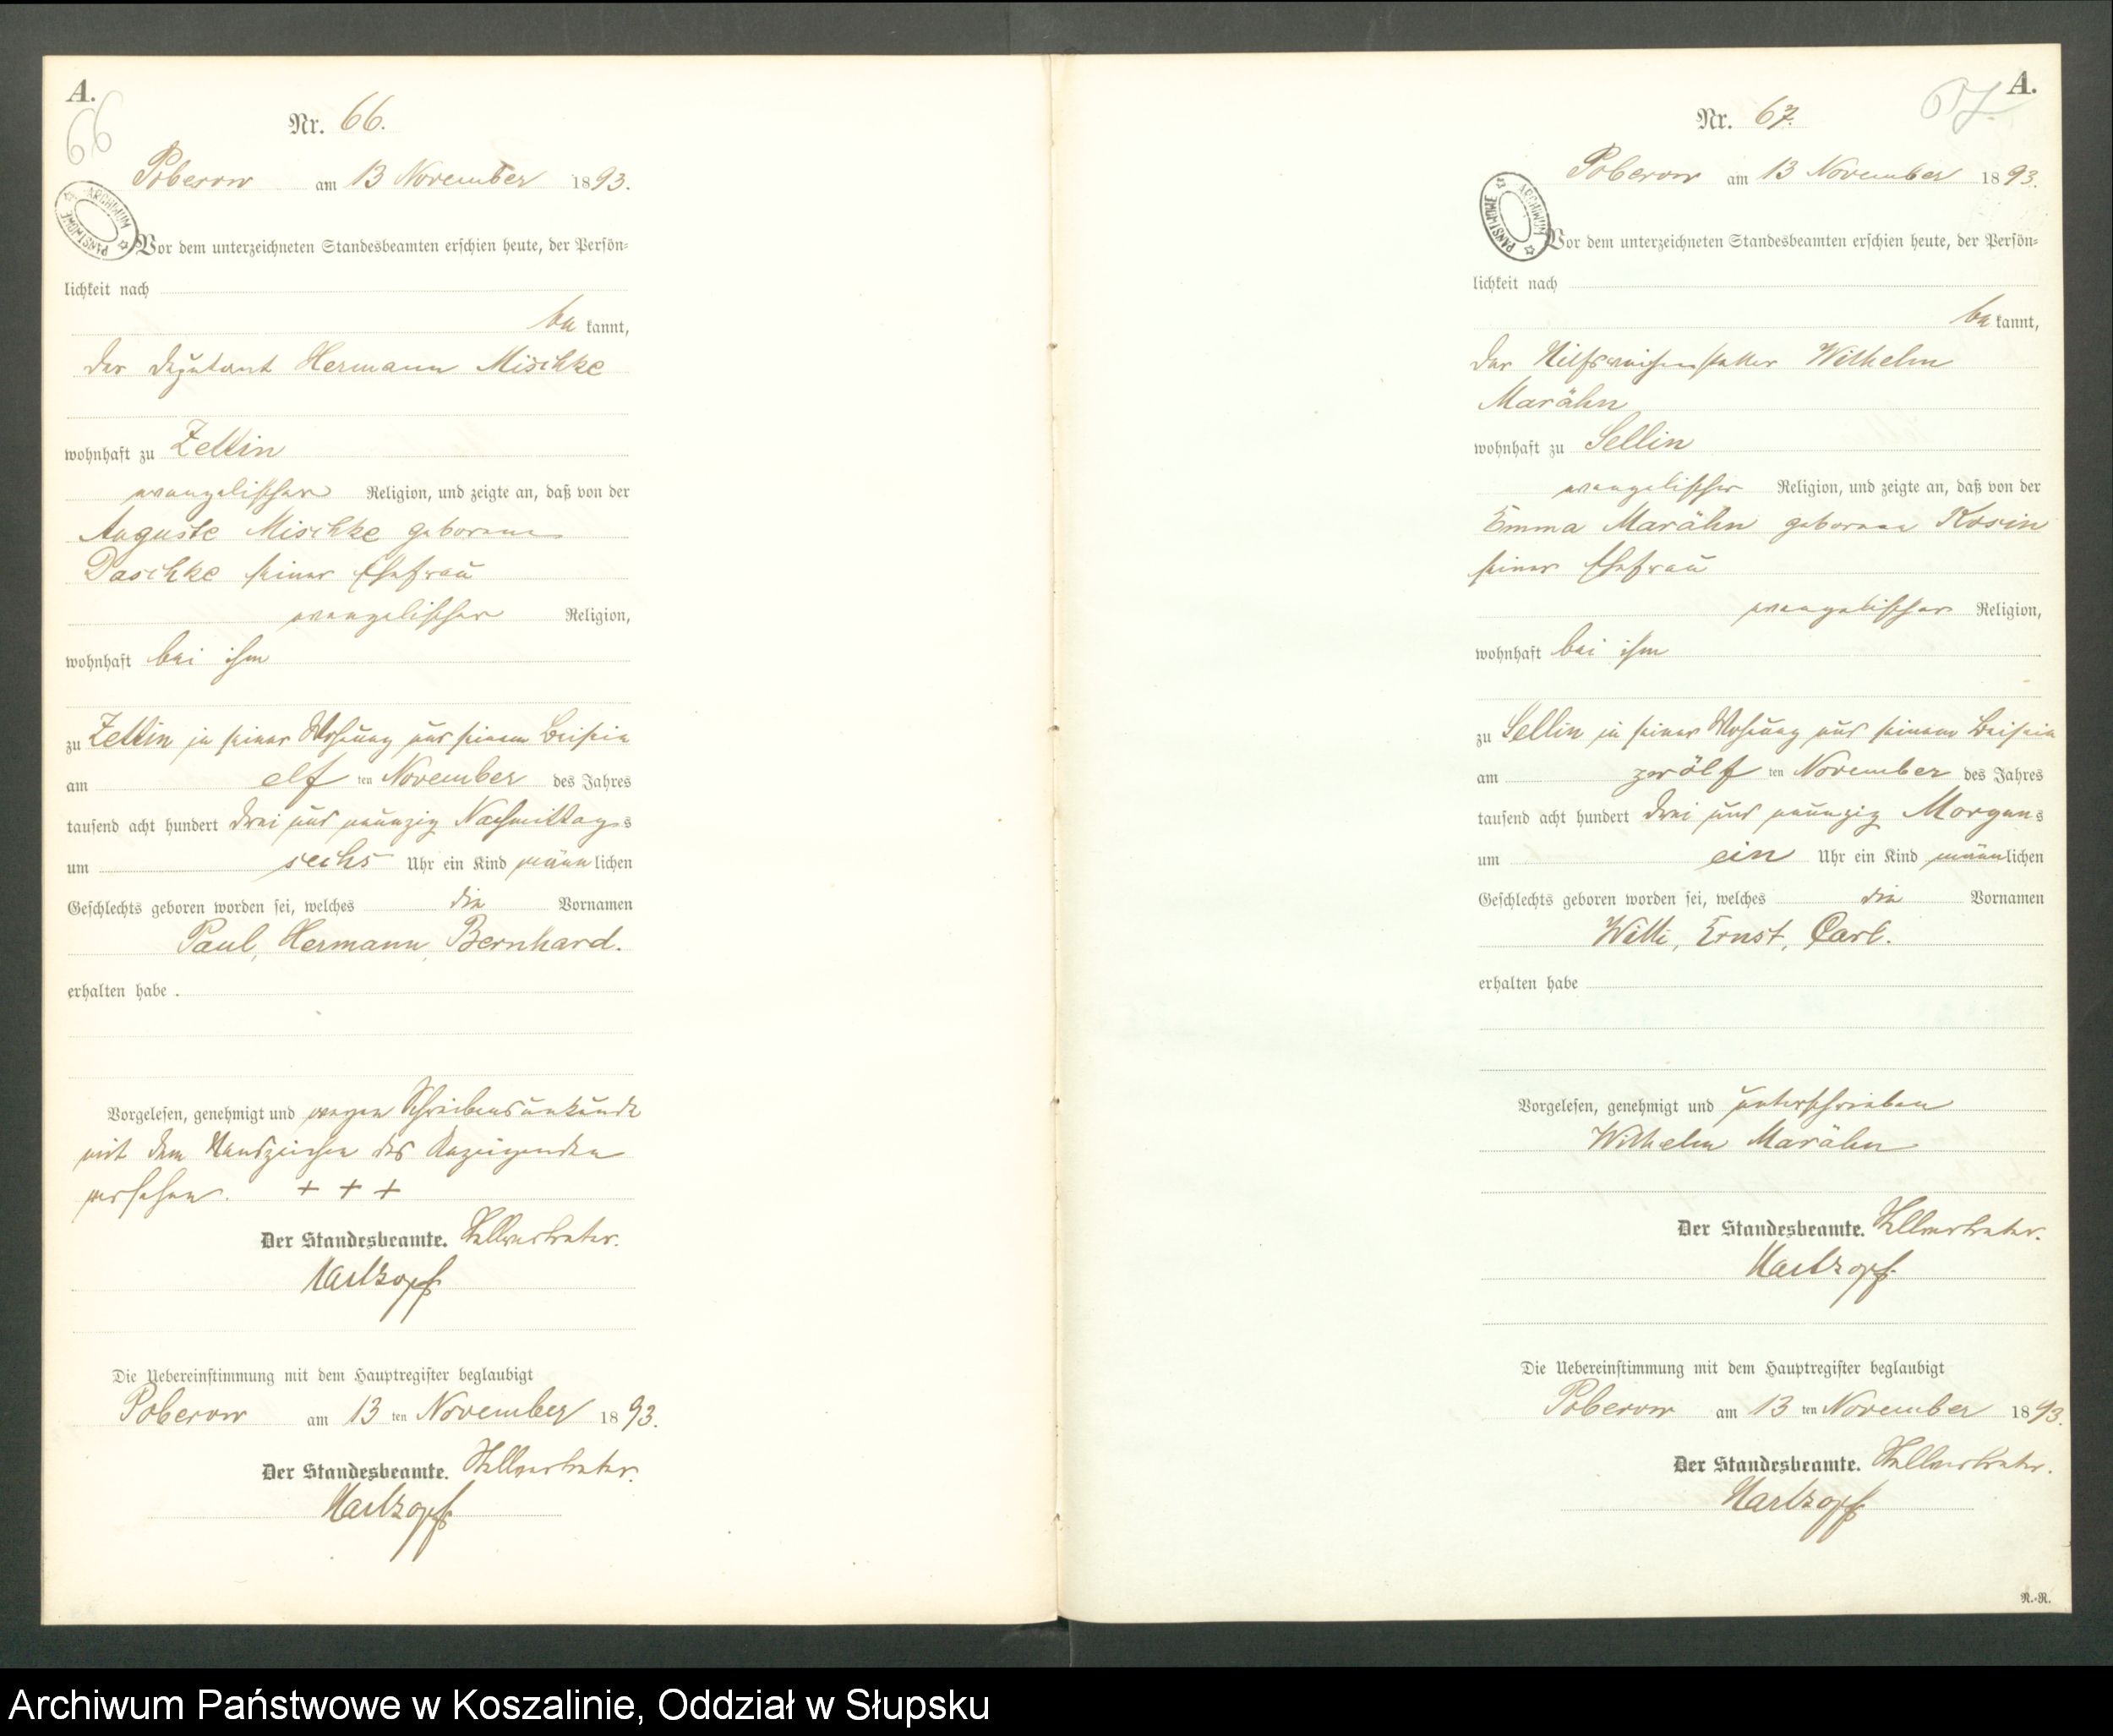 A.
66
Nr. 66.
Poberow am 13 November 1893.
ARCHIWUM PAŃSTWOWE
Vor dem unterzeichneten Standesbeamten erschien heute, der Persön=
lichkeit nach
be kannt,
der Deputant Hermann Mischke
wohnhaft zu Zettin
evangelischer Religion, und zeigte an, daß von der
Auguste Mischke geborene
Daschke seiner Ehefrau
evangelischer Religion,
wohnhaft bei ihm
zu Zettin in seiner Wohnung und seinem Beisein
am elf ten November des Jahres
tausend acht hundert drei und neunzig Nachmittags
um sechs Uhr ein Kind männlichen
Geschlechts geboren worden sei, welches die Vornamen
Paul, Hermann, Bernhard.
erhalten habe .
Vorgelesen, genehmigt und wegen Schreibensunkunde
mit dem Handzeichen des Anzeigenden
versehen. + + +
Der Standesbeamte. Stellvertreter.
Hartkopf
Die Uebereinstimmung mit dem Hauptregister beglaubigt
Poberow am 13 ten November 1893.
Der Standesbeamte. Stellvertreter.
Hartkopf
A.
67.
Nr. 67.
Poberow am 13 November 1893.
ARCHIWUM PAŃSTWOWE
Vor dem unterzeichneten Standesbeamten erschien heute, der Persön=
lichkeit nach
be kannt,
der Hilfsweichensteller Wilhelm
Marähn
wohnhaft zu Sellin
evangelischer Religion, und zeigte an, daß von der
Emma Marähn geborene Kosin
seiner Ehefrau
evangelischer Religion,
wohnhaft bei ihm
zu Sellin in seiner Wohnung und seinem Beisein
am zwölf ten November des Jahres
tausend acht hundert drei und neunzig Morgens
um ein Uhr ein Kind männlichen
Geschlechts geboren worden sei, welches die Vornamen
Willi, Ernst, Carl.
erhalten habe
Vorgelesen, genehmigt und unterschrieben
Wilhelm Marähn
Der Standesbeamte. Stellvertreter.
Hartkopf
Die Uebereinstimmung mit dem Hauptregister beglaubigt
Poberow am 13 ten November 1893.
Der Standesbeamte. Stellvertreter.
Hartkopf
R.-R.
Archiwum Państwowe w Koszalinie, Oddział w Słupsku